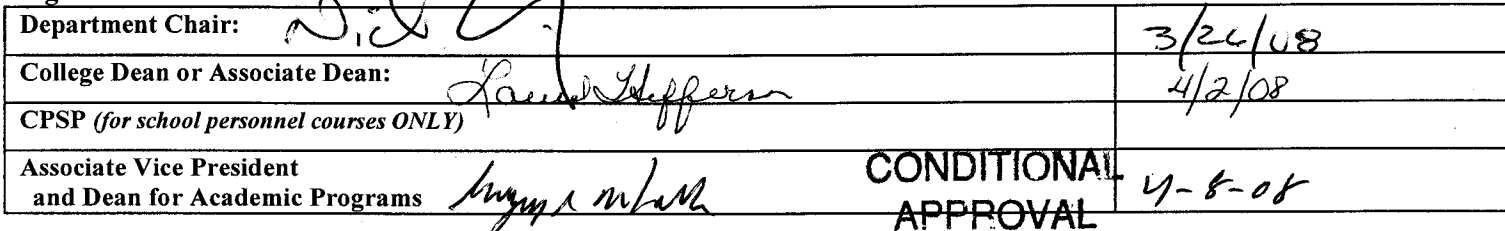 Department Chair: 3/26/08
College Dean or Associate Dean: Laurel Hefferson 4/2/08
CPSP (for school personnel courses ONLY)
Associate Vice President
and Dean for Academic Programs 4-8-08
CONDITIONAL
APPROVAL